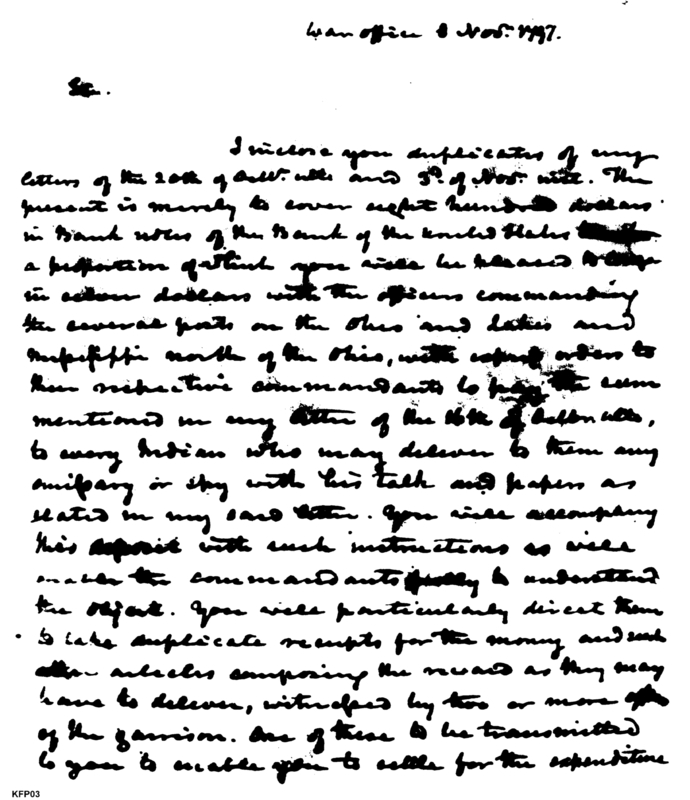 War office 8 Nov.r 1797.
Sir.
I inclose you duplicates of my
letters of the 20th of Octbr. ulto and 3d. of Nov. inst. The
present is merely to cover eight hundred dollars
in Bank notes of the Bank of the United States
a proportion of which you will be pleased to lodge
in silver dollars with the officers commanding
the several posts on the Ohio and Lakes and
Missisippi north of the Ohio, with express orders to
their respective commandants to pay the sum
mentioned in my letter of the of Octbr ulto,
to every Indian who may deliver to them any
emissary or spy with his talk and papers as
stated in my said letter. You will accompany
this deposit with such instructions as will
enable the commandants fully to understand
the object. You will particularly direct them
to take duplicate receipts for the money and such
other articles composing the reward as they may
have to deliver, witnessed by two or more
of the garrison. One of these to be transmitted
to you to enable you to settle for the expenditure
KFP03